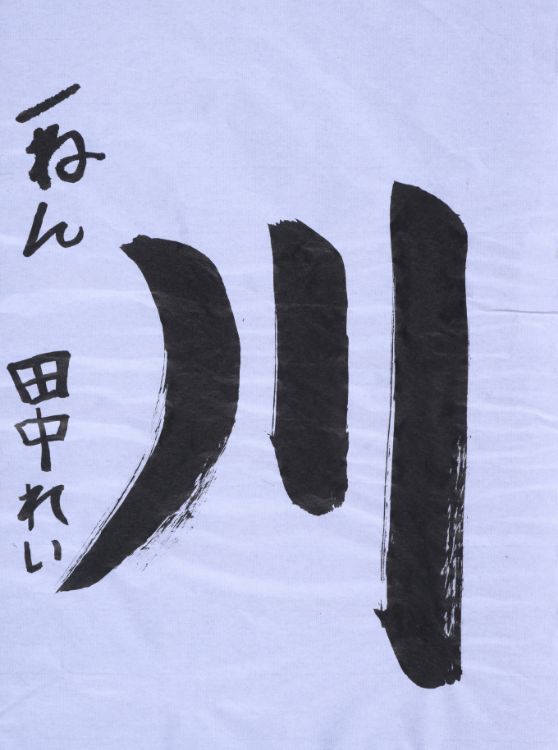 川
一ねん 田中れい